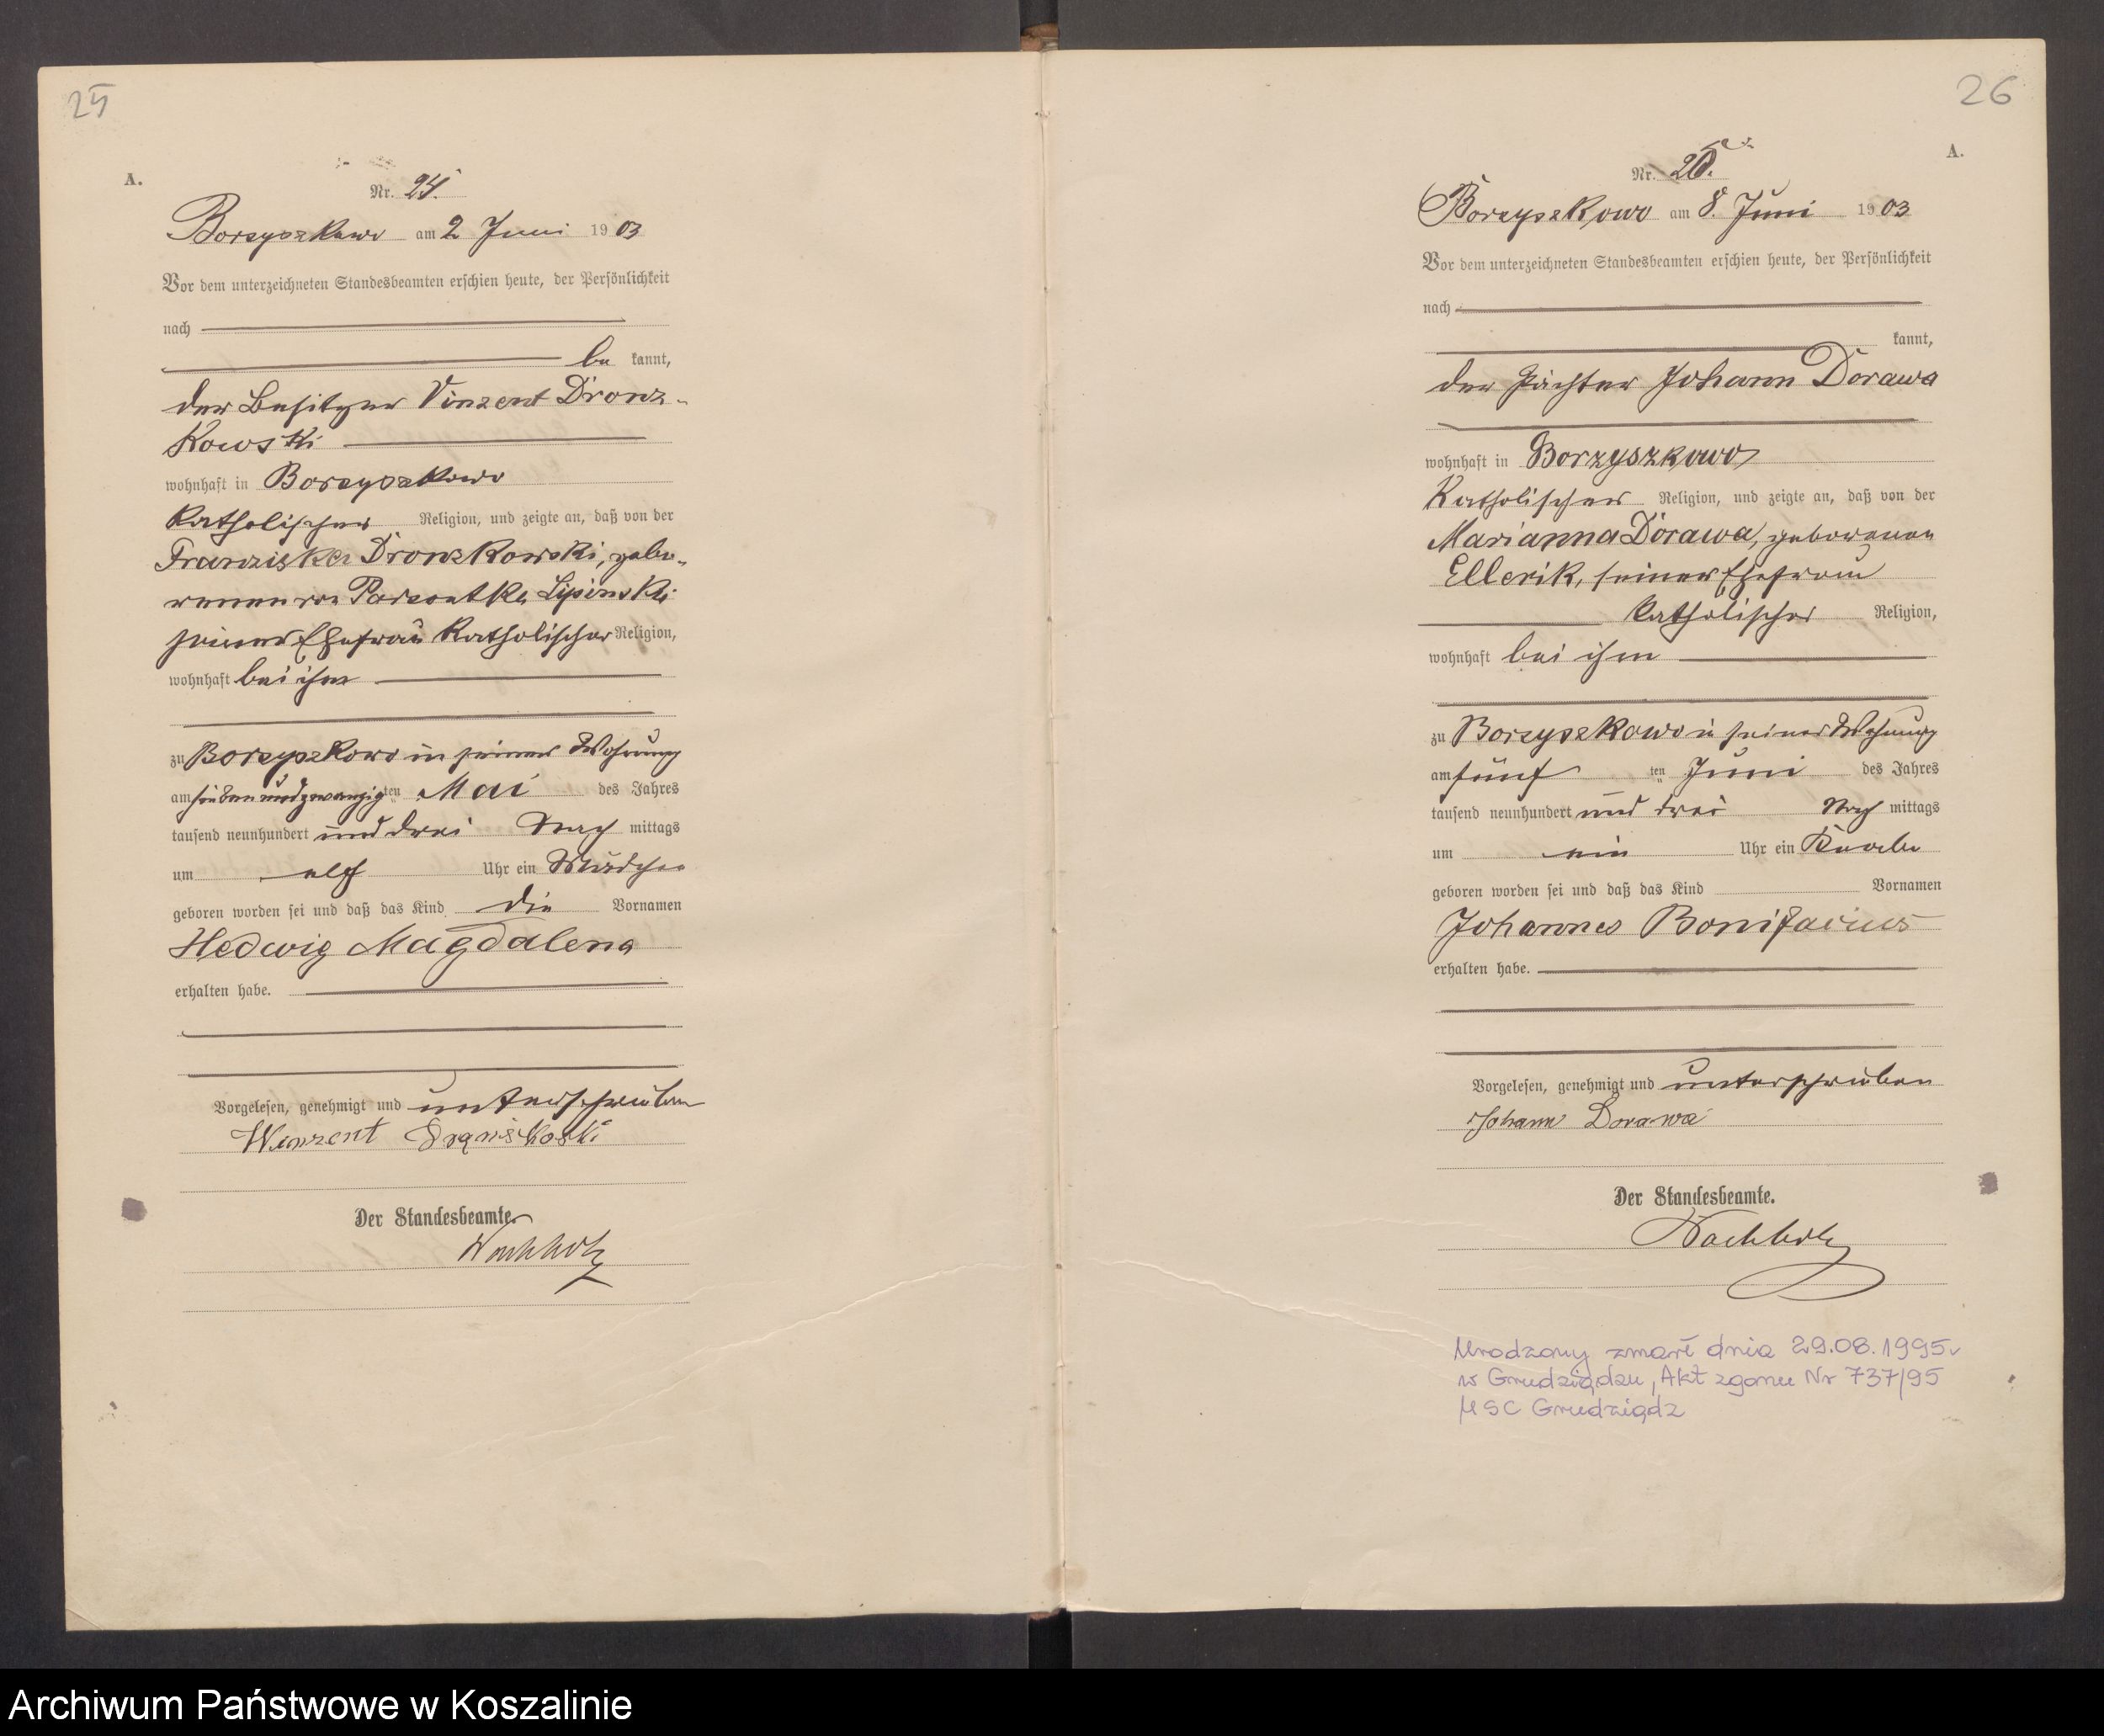 25
A.
Nr. 24.
Borzyszkowo am 2 Juni 1903
Vor dem unterzeichneten Standesbeamten erschien heute, der Persönlichkeit
nach
be kannt,
der Besitzer Vinzent Dronz-
kowski
wohnhaft in Borzyszkowo
katholischer Religion, und zeigte an, daß von der
Franziska Dronzkowski, gebo-
renen von Parzontka Lipinski
seiner Ehefrau katholischer Religion,
wohnhaft bei ihm
zu Borzyszkowo in seiner Wohnung
am siebenundzwanzigten Mai des Jahres
tausend neunhundert und drei Nach mittags
um elf Uhr ein Mädchen
geboren worden sei und daß das Kind die Vornamen
Hedwig Magdalena
erhalten habe.
Vorgelesen, genehmigt und unterschrieben
Winzent
Der Standesbeamte.
Wachholz
26
A.
Nr. 25.
Borzyszkowo am 8. Juni 1903
Vor dem unterzeichneten Standesbeamten erschien heute, der Persönlichkeit
nach
kannt,
der Pächter Johann Dorawa
wohnhaft in Borzyszkowo
katholischer Religion, und zeigte an, daß von der
Marianna Dorawa, geborenen
Ellerik, seiner Ehefrau
katholischer Religion,
wohnhaft bei ihm
zu Borzyszkowo in seiner Wohnung
am fünf ten Juni des Jahres
tausend neunhundert und drei Nach mittags
um ein Uhr ein Knabe
geboren worden sei und daß das Kind Vornamen
Johannes Bonifacius
erhalten habe.
Vorgelesen, genehmigt und unterschrieben
Johann Dorawa
Der Standesbeamte.
Wachholz
Urodzony zmarł dnia 29.08.1995r
w Grudziądzu, Akt zgonu Nr 737/95
USC Grudziądz
Archiwum Państwowe w Koszalinie